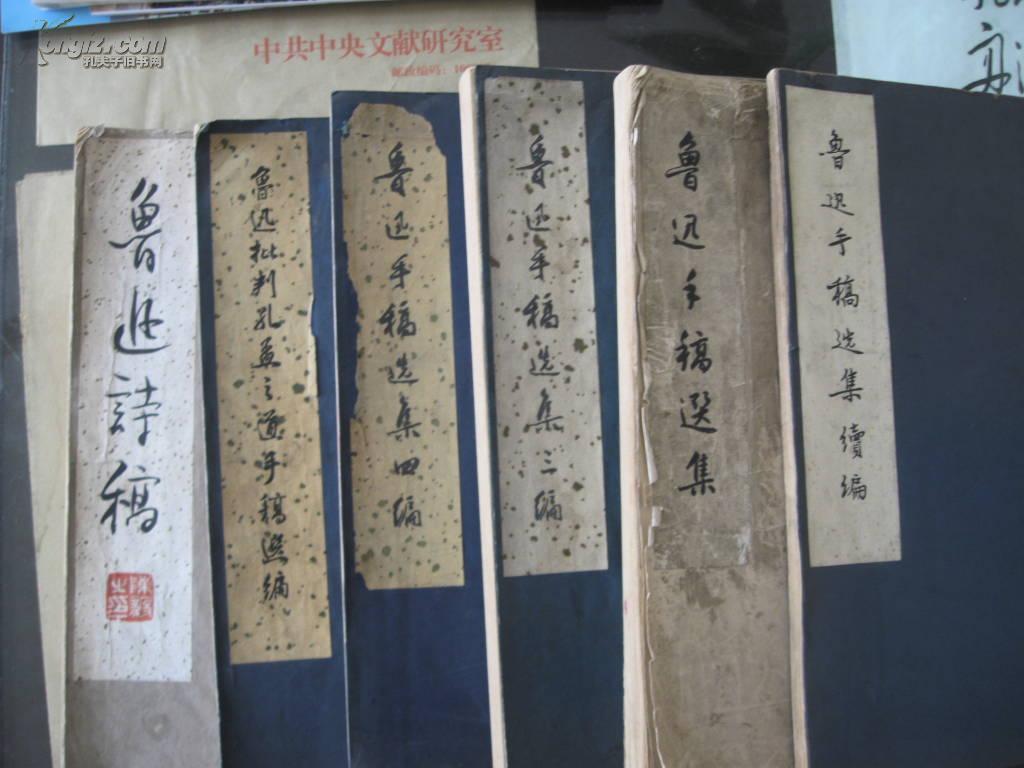 Kongfz.com
孔夫子旧书网
中共中央文献研究室
邮政编码:
魯迅詩稿
魯迅批判孔孟之道手稿選編
魯迅手稿选集四编
魯迅手稿选集三编
魯迅手稿選集
魯迅手稿选集續编